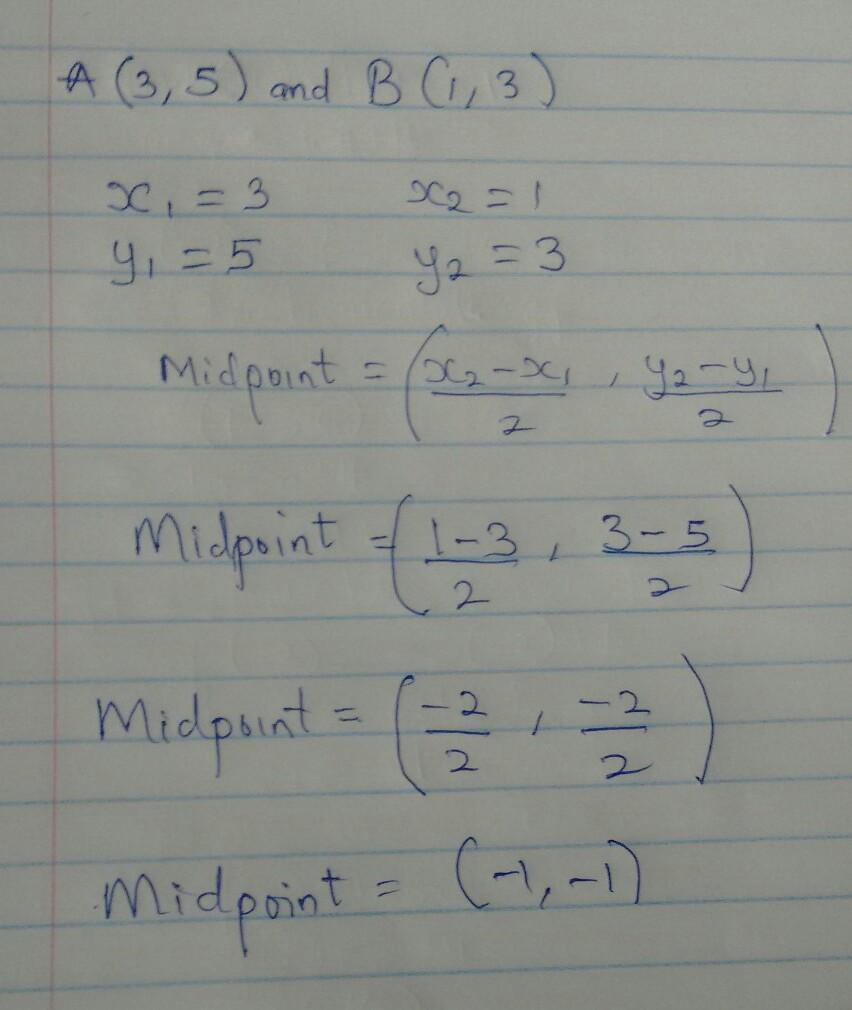 A (3, 5) and B (1, 3)
x₁ = 3 x₂ = 1
y₁ = 5 y₂ = 3
Midpoint = ((x₂ - x₁)/2 , (y₂ - y₁)/2)
Midpoint = ((1 - 3)/2 , (3 - 5)/2)
Midpoint = (-2/2 , -2/2)
Midpoint = (-1, -1)